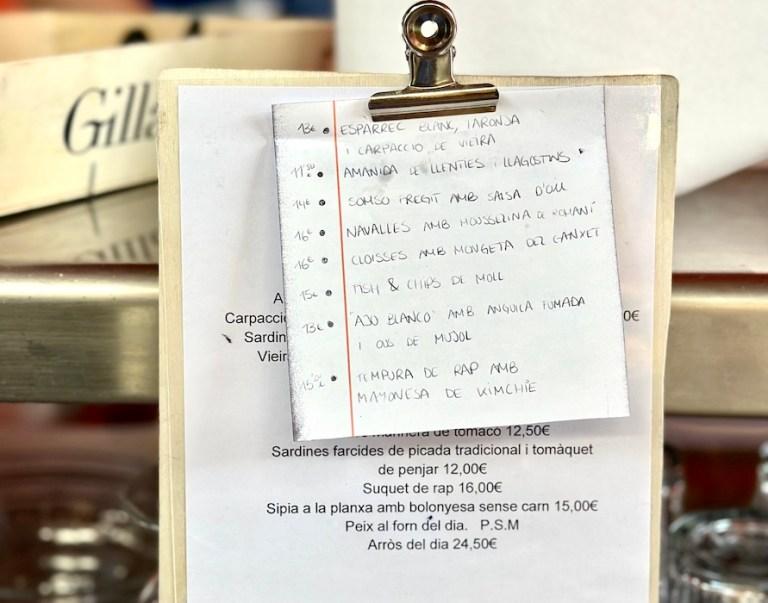 Gilla
13€ • ESPÀRREC BLANC, TARONJA
I CARPACCIO DE VIEIRA
11'50€ • AMANIDA DE LLENTIES I LLAGOSTINS
14€ • SONSO FREGIT AMB SALSA D'OLI
16€ • NAVALLES AMB MOUSSELINA DE ROMANÍ
16€ • CLOISSES AMB MONGETA DEL GANXET
15€ • FISH & CHIPS DE MOLL
13€ • "AJO BLANCO" AMB ANGUILA FUMADA
I OUS DE MUJOL
• TEMPURA DE RAP AMB
MAYONESA DE KIMCHIE
A
Carpacci 0€
Sardin
Vieir
marinera de tomaco 12,50€
Sardines farcides de picada tradicional i tomàquet
de penjar 12,00€
Suquet de rap 16,00€
Sipia a la planxa amb bolonyesa sense carn 15,00€
Peix al forn del dia. P.S.M
Arròs del dia 24,50€